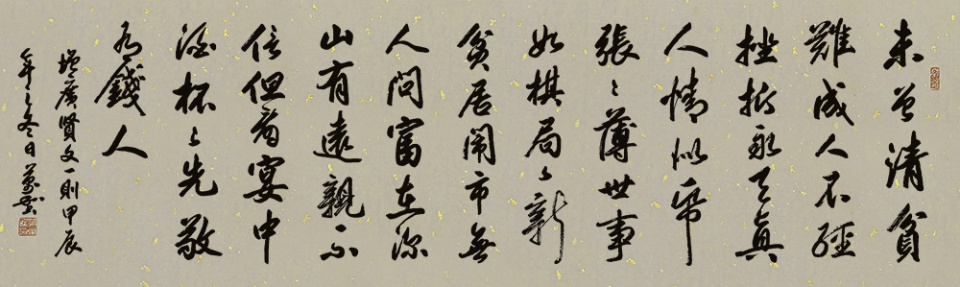 未曾清貧
難成人不經
挫折永天真
人情似帋
張〻薄世事
如棋局〻新
貧居鬧市無
人問富在深
山有遠親不
信但看宴中
酒杯〻先敬
有錢人
增廣賢文一則甲辰
年之冬日